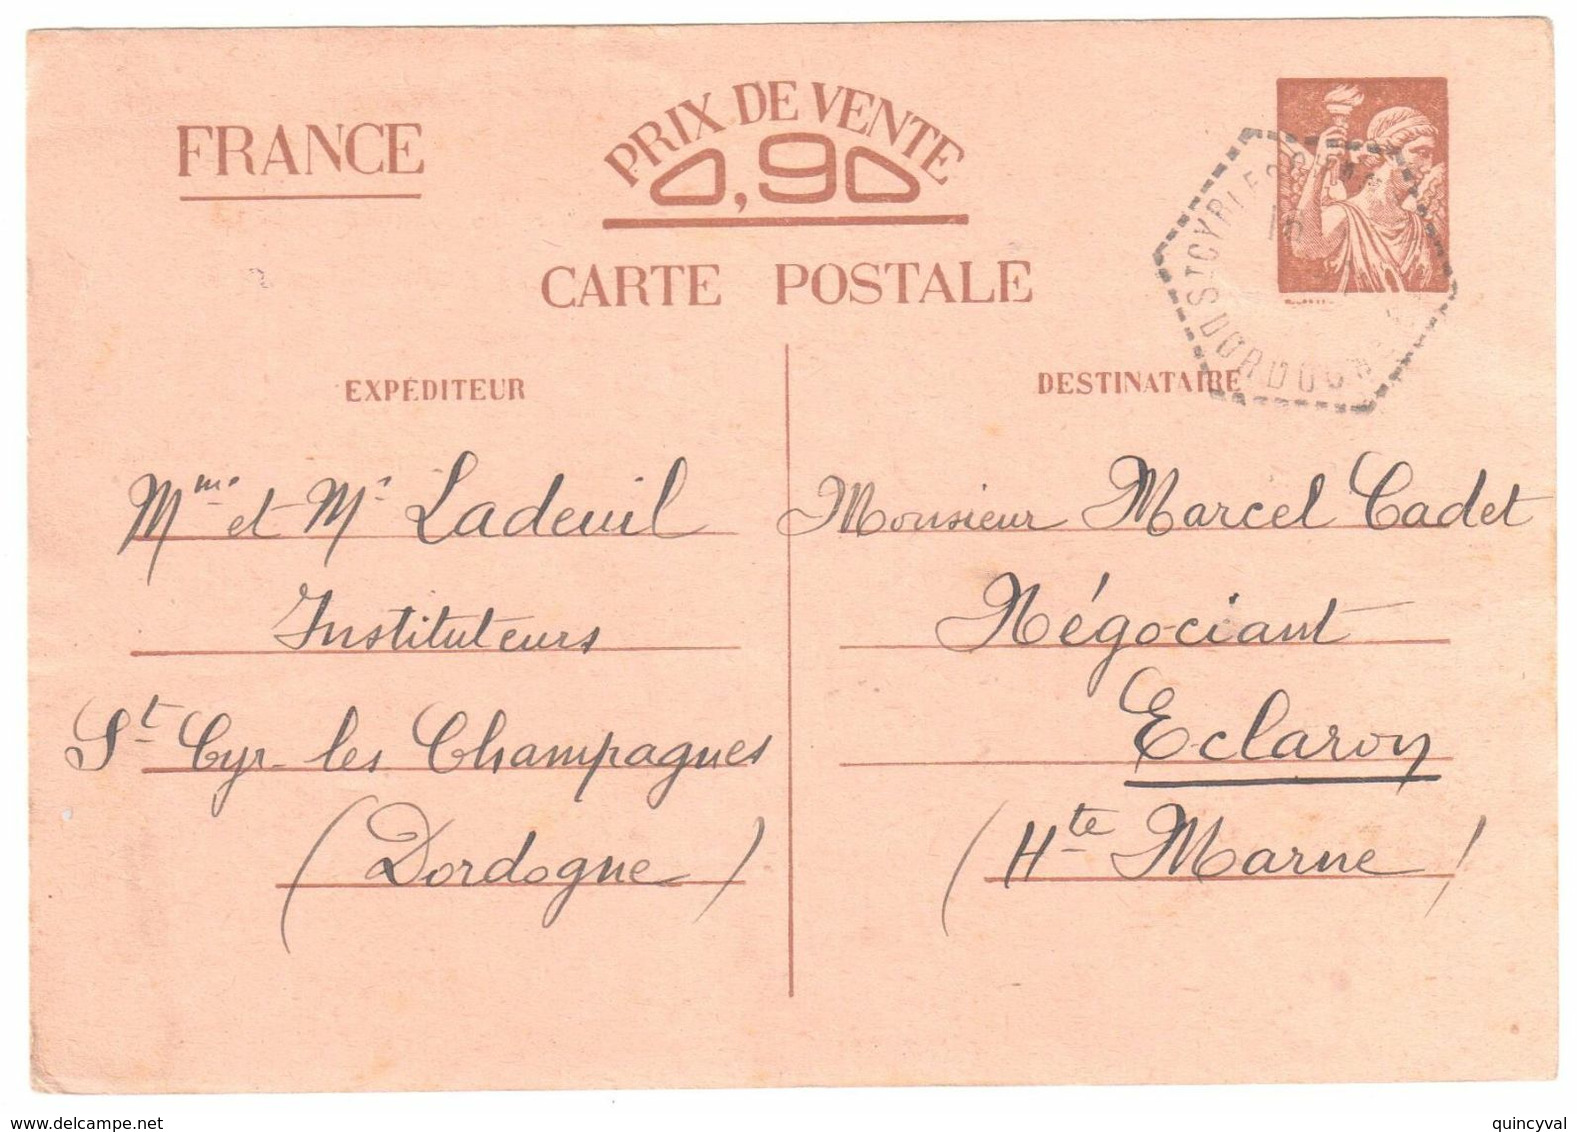 FRANCE
PRIX DE VENTE
0,90
CARTE POSTALE
EXPÉDITEUR
Mme et Mr Ladeuil
Instituteurs
St Cyr-les Champagnes
(Dordogne)
DESTINATAIRE
Monsieur Marcel Cadet
Négociant
Eclaron
(Hte Marne)
DORDOGNE
www.delcampe.net
quincyval